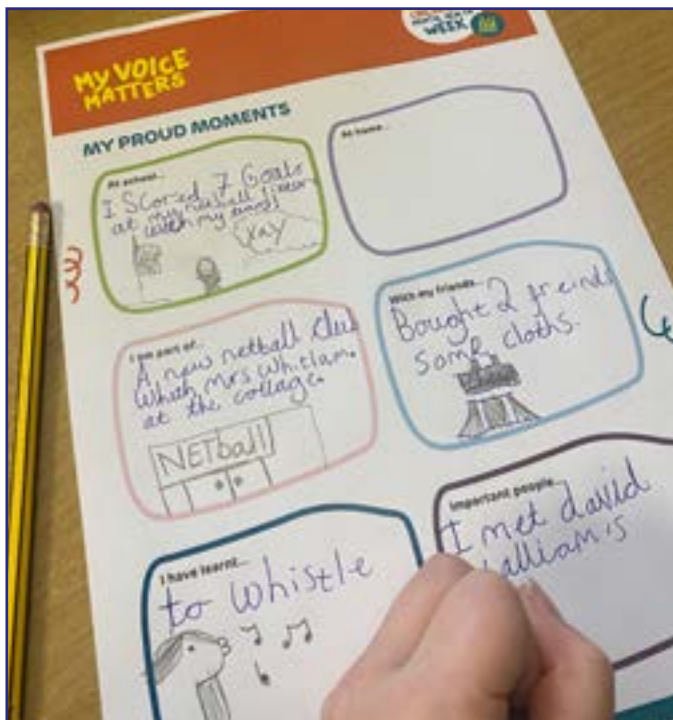 WEEK
MY VOICE
MATTERS
MY PROUD MOMENTS
At school...
I Scored 7 Goals
at my netball
with my team!
YAY
At home...
I am part of...
A new netball club
Whith mrs Whitlam.
at the collage.
NETball
With my friends...
Bought 2 freinds
some cloths.
I have learnt...
to whistle
Important people...
I met david
walliam's